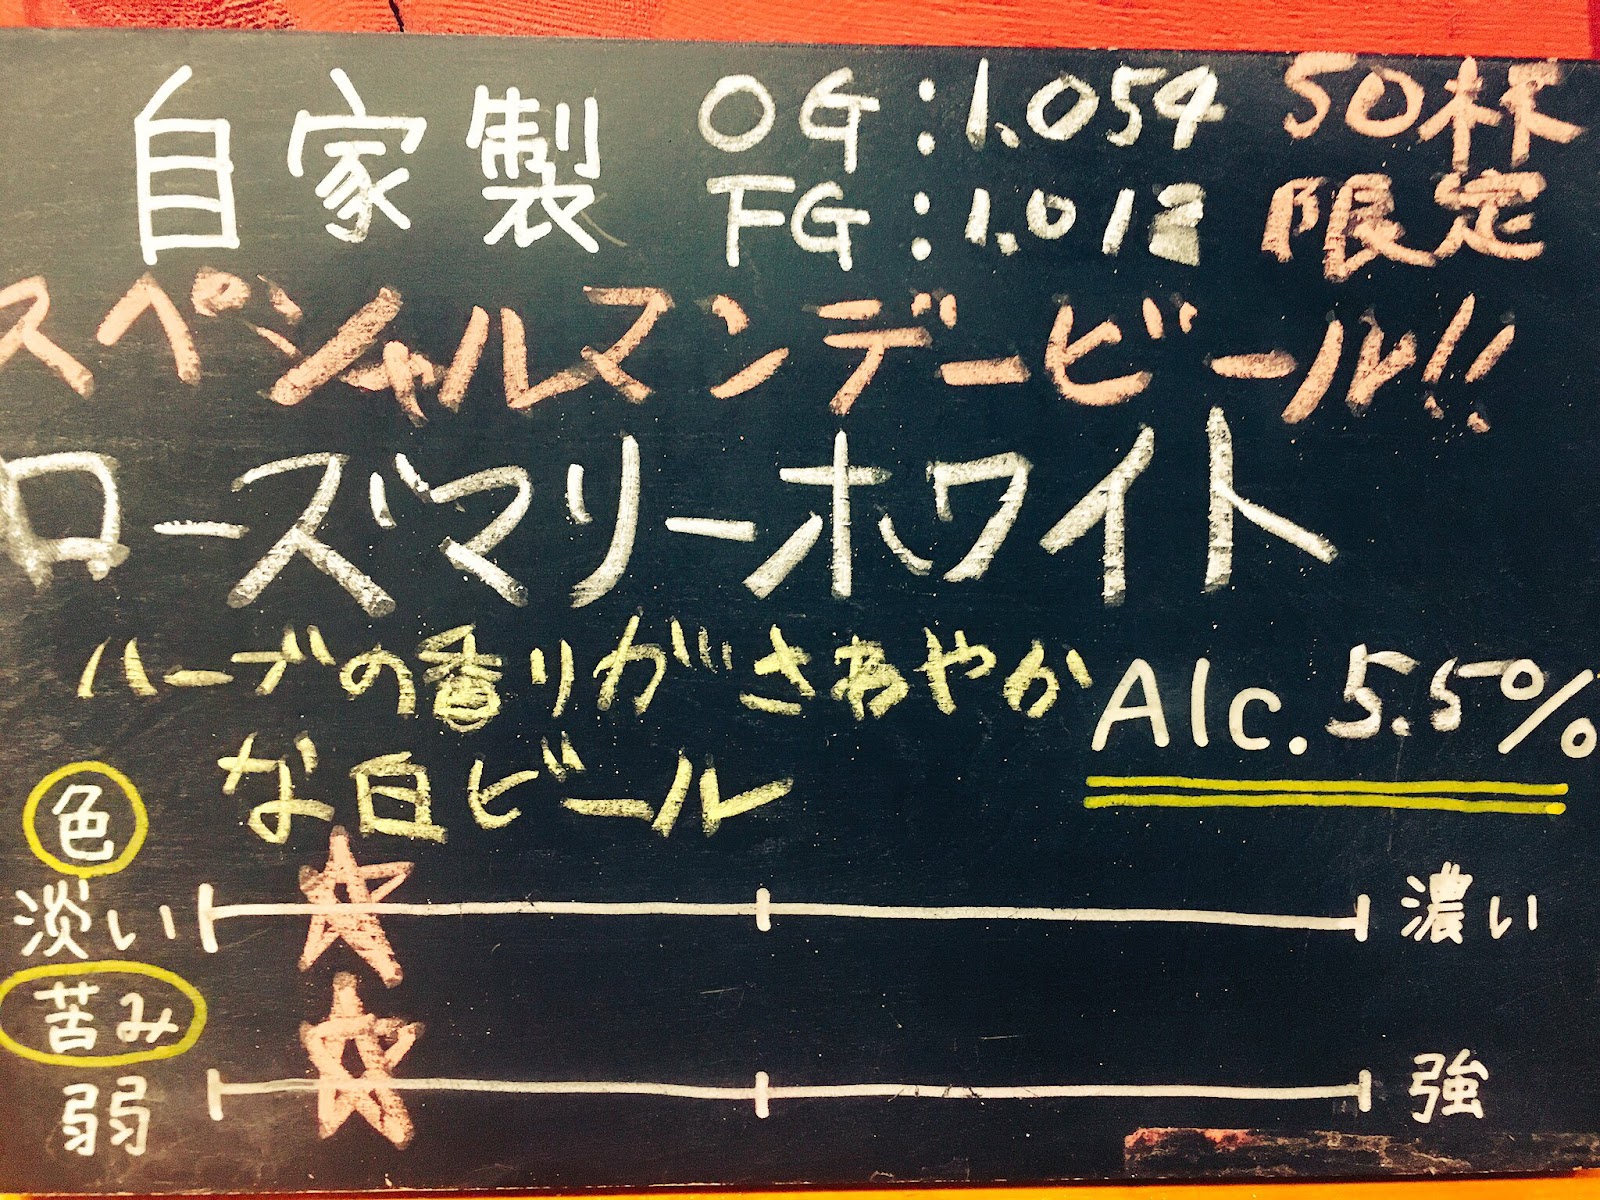 自家製 OG:1.054 50杯
FG:1.012 限定
スペシャルマンデービール!!
ローズマリーホワイト
ハーブの香りがさわやか
な白ビール
Alc. 5.5%
色
淡い 濃い
苦み
弱 強